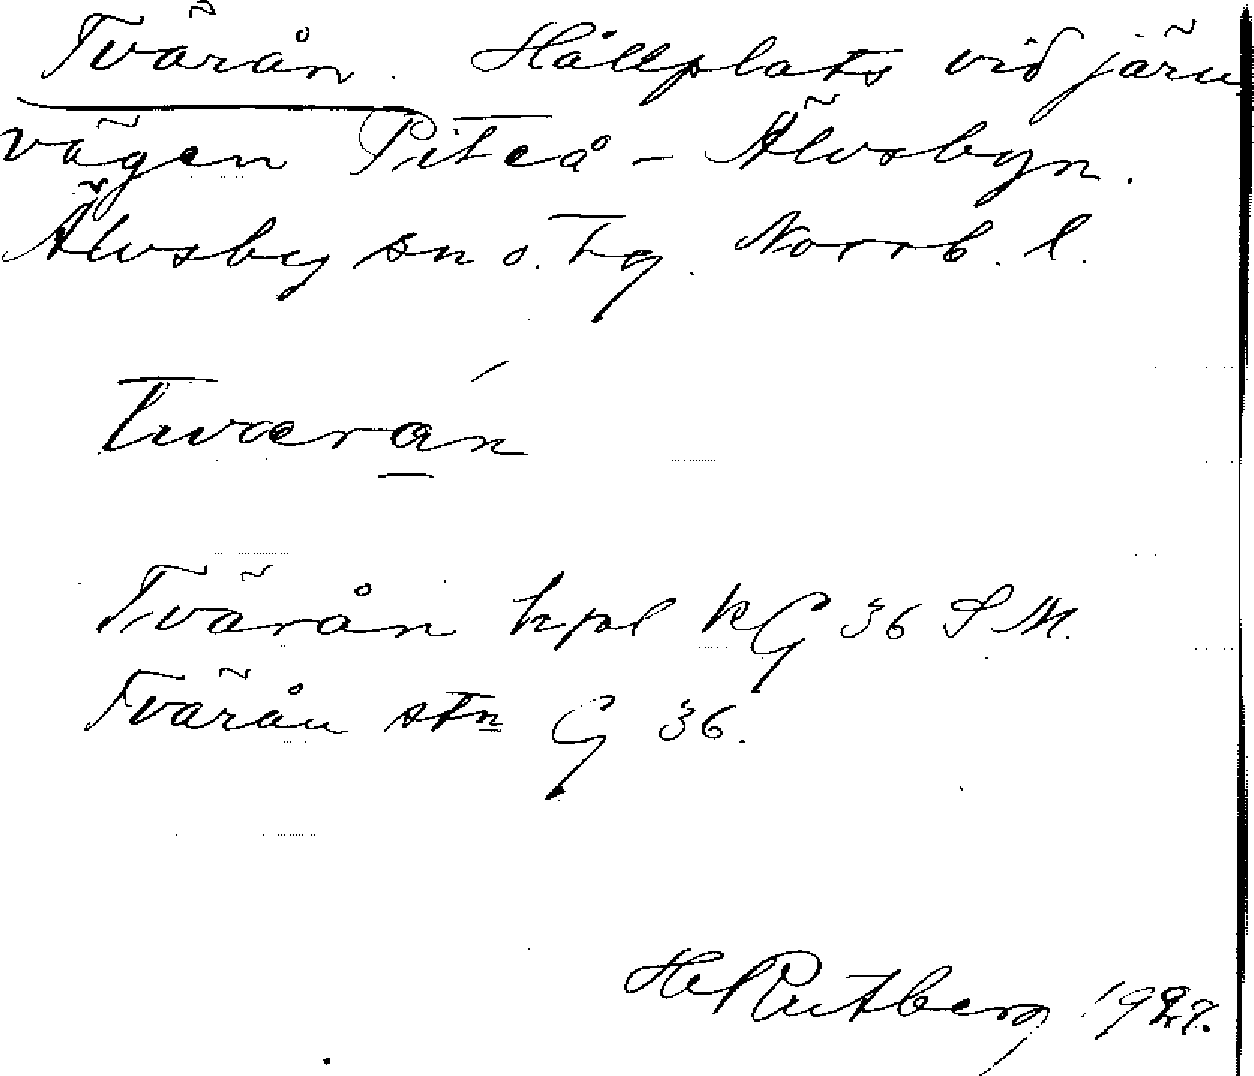 Tvärån. Hållplats vid järn
vägen Piteå - Älvsbyn.
Älvsby sn o. tg. Norrb. l.
Tværá̱n
Tvärån hpl kG 36 S M.
Tvärån stn G 36.
H Rutberg 1927.